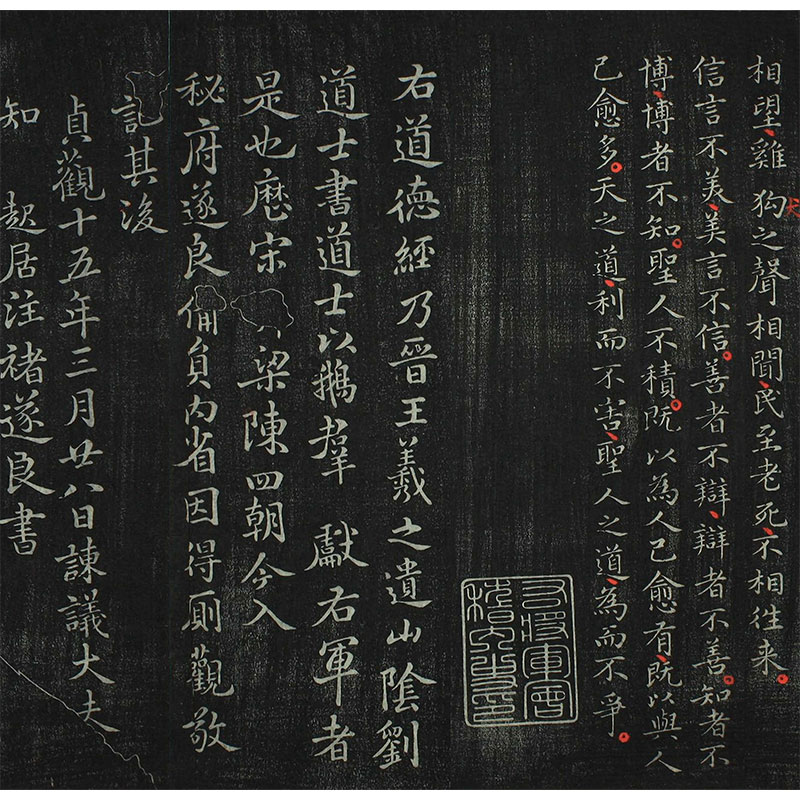 相望雞狗之聲相聞民至老死不相往来
犬
信言不美美言不信善者不辯辯者不善知者不
博博者不知聖人不積既以為人己愈有既以與人
己愈多天之道利而不害聖人之道為而不爭
右將軍會
稽內史印
右道德經乃晉王羲之遺山陰劉
道士書道士以鵝羣獻右軍者
是也歷宋梁陳四朝今入
秘府遂良備員内省因得厠觀敬
記其後
貞觀十五年三月廿八日諫議大夫
知起居注褚遂良書